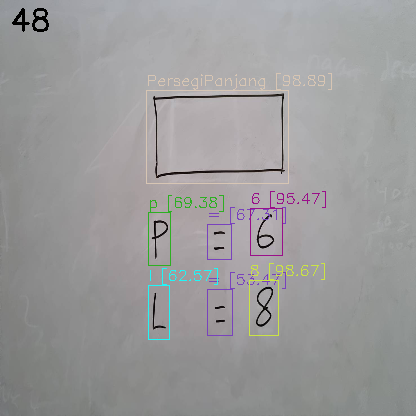 48
PersegiPanjang [98.89]
p [69.38] = [67.31] 6 [95.47]
P = 6
l [62.57] = [53.47] 8 [98.67]
L = 8